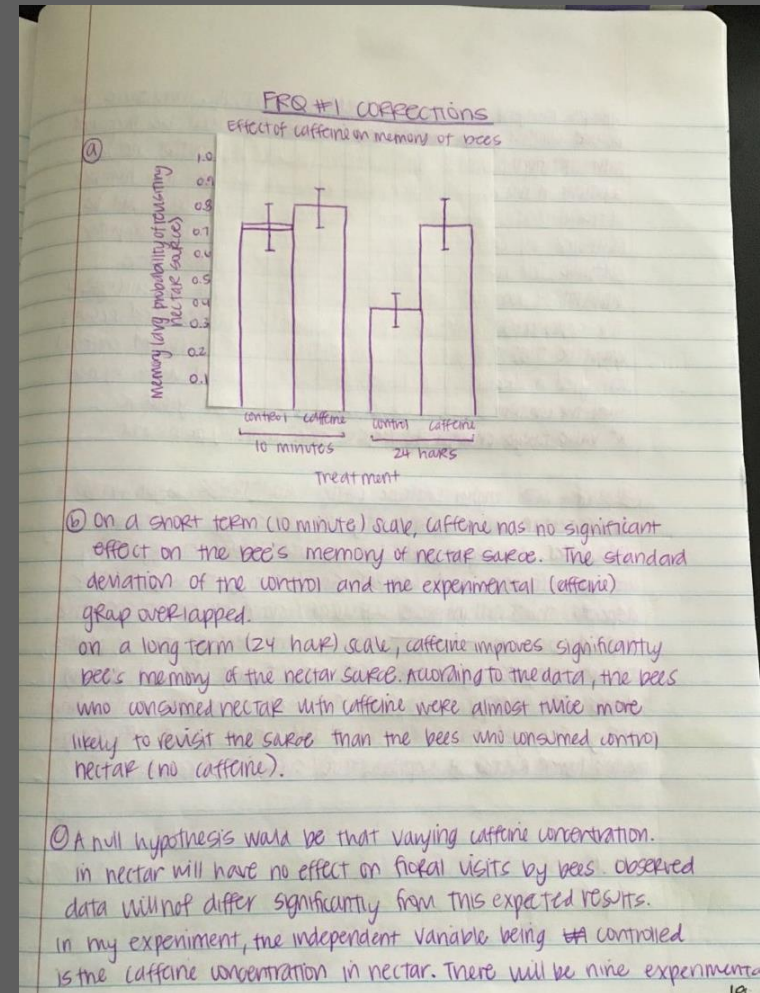 FRQ #1 CORRECTIONS
Effect of caffeine on memory of bees
(a)
Memory (avg probability of revisiting
nectar sarce)
1.0
0.9
0.8
0.7
0.6
0.5
0.4
0.3
0.2
0.1
control caffeine control caffeine
10 minutes 24 hars
Treatment
(b) On a short term (10 minute) scale, caffeine has no significant
effect on the bee's memory of nectar sarce. The standard
deviation of the control and the experimental (caffeine)
grap overlapped.
on a long term (24 har) scale, caffeine improves significantly
bee's memory of the nectar sarce. According to the data, the bees
who consumed nectar with caffeine were almost twice more
likely to revisit the sarce than the bees who consumed control
nectar (no caffeine).
(c) A null hypothesis wald be that varying caffeine concentration.
in nectar will have no effect on floral visits by bees. Observed
data will not differ significantly from this expected results.
In my experiment, the independent variable being controlled
is the caffeine concentration in nectar. There will be nine experimenta